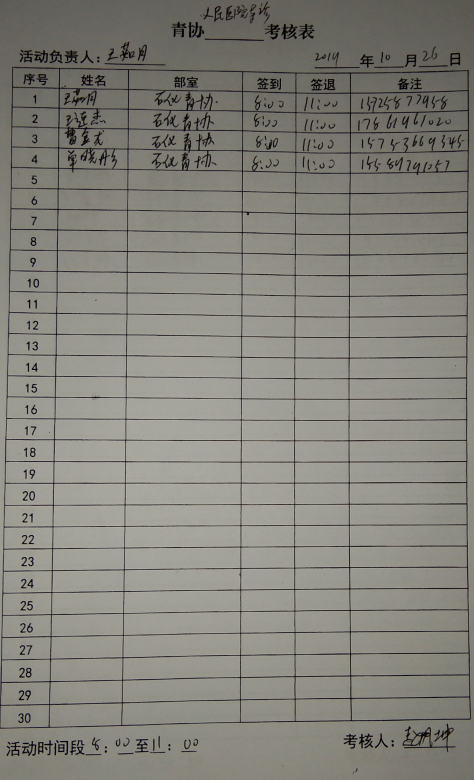 人民医院导诊
青协______考核表
活动负责人：王茹月 2019 年 10 月 26 日
序号 姓名 部室 签到 签退 备注
1 王茹月 石化青协 8:00 11:00 15725877958
2 王连杰 石化青协 8:00 11:00 17861961020
3 曹金龙 石化青协 8:00 11:00 15753669345
4 单晓彤 石化青协 8:00 11:00 15589791057
5
6
7
8
9
10
11
12
13
14
15
16
17
18
19
20
21
22
23
24
25
26
27
28
29
30
活动时间段 8：00 至 11：00 考核人：